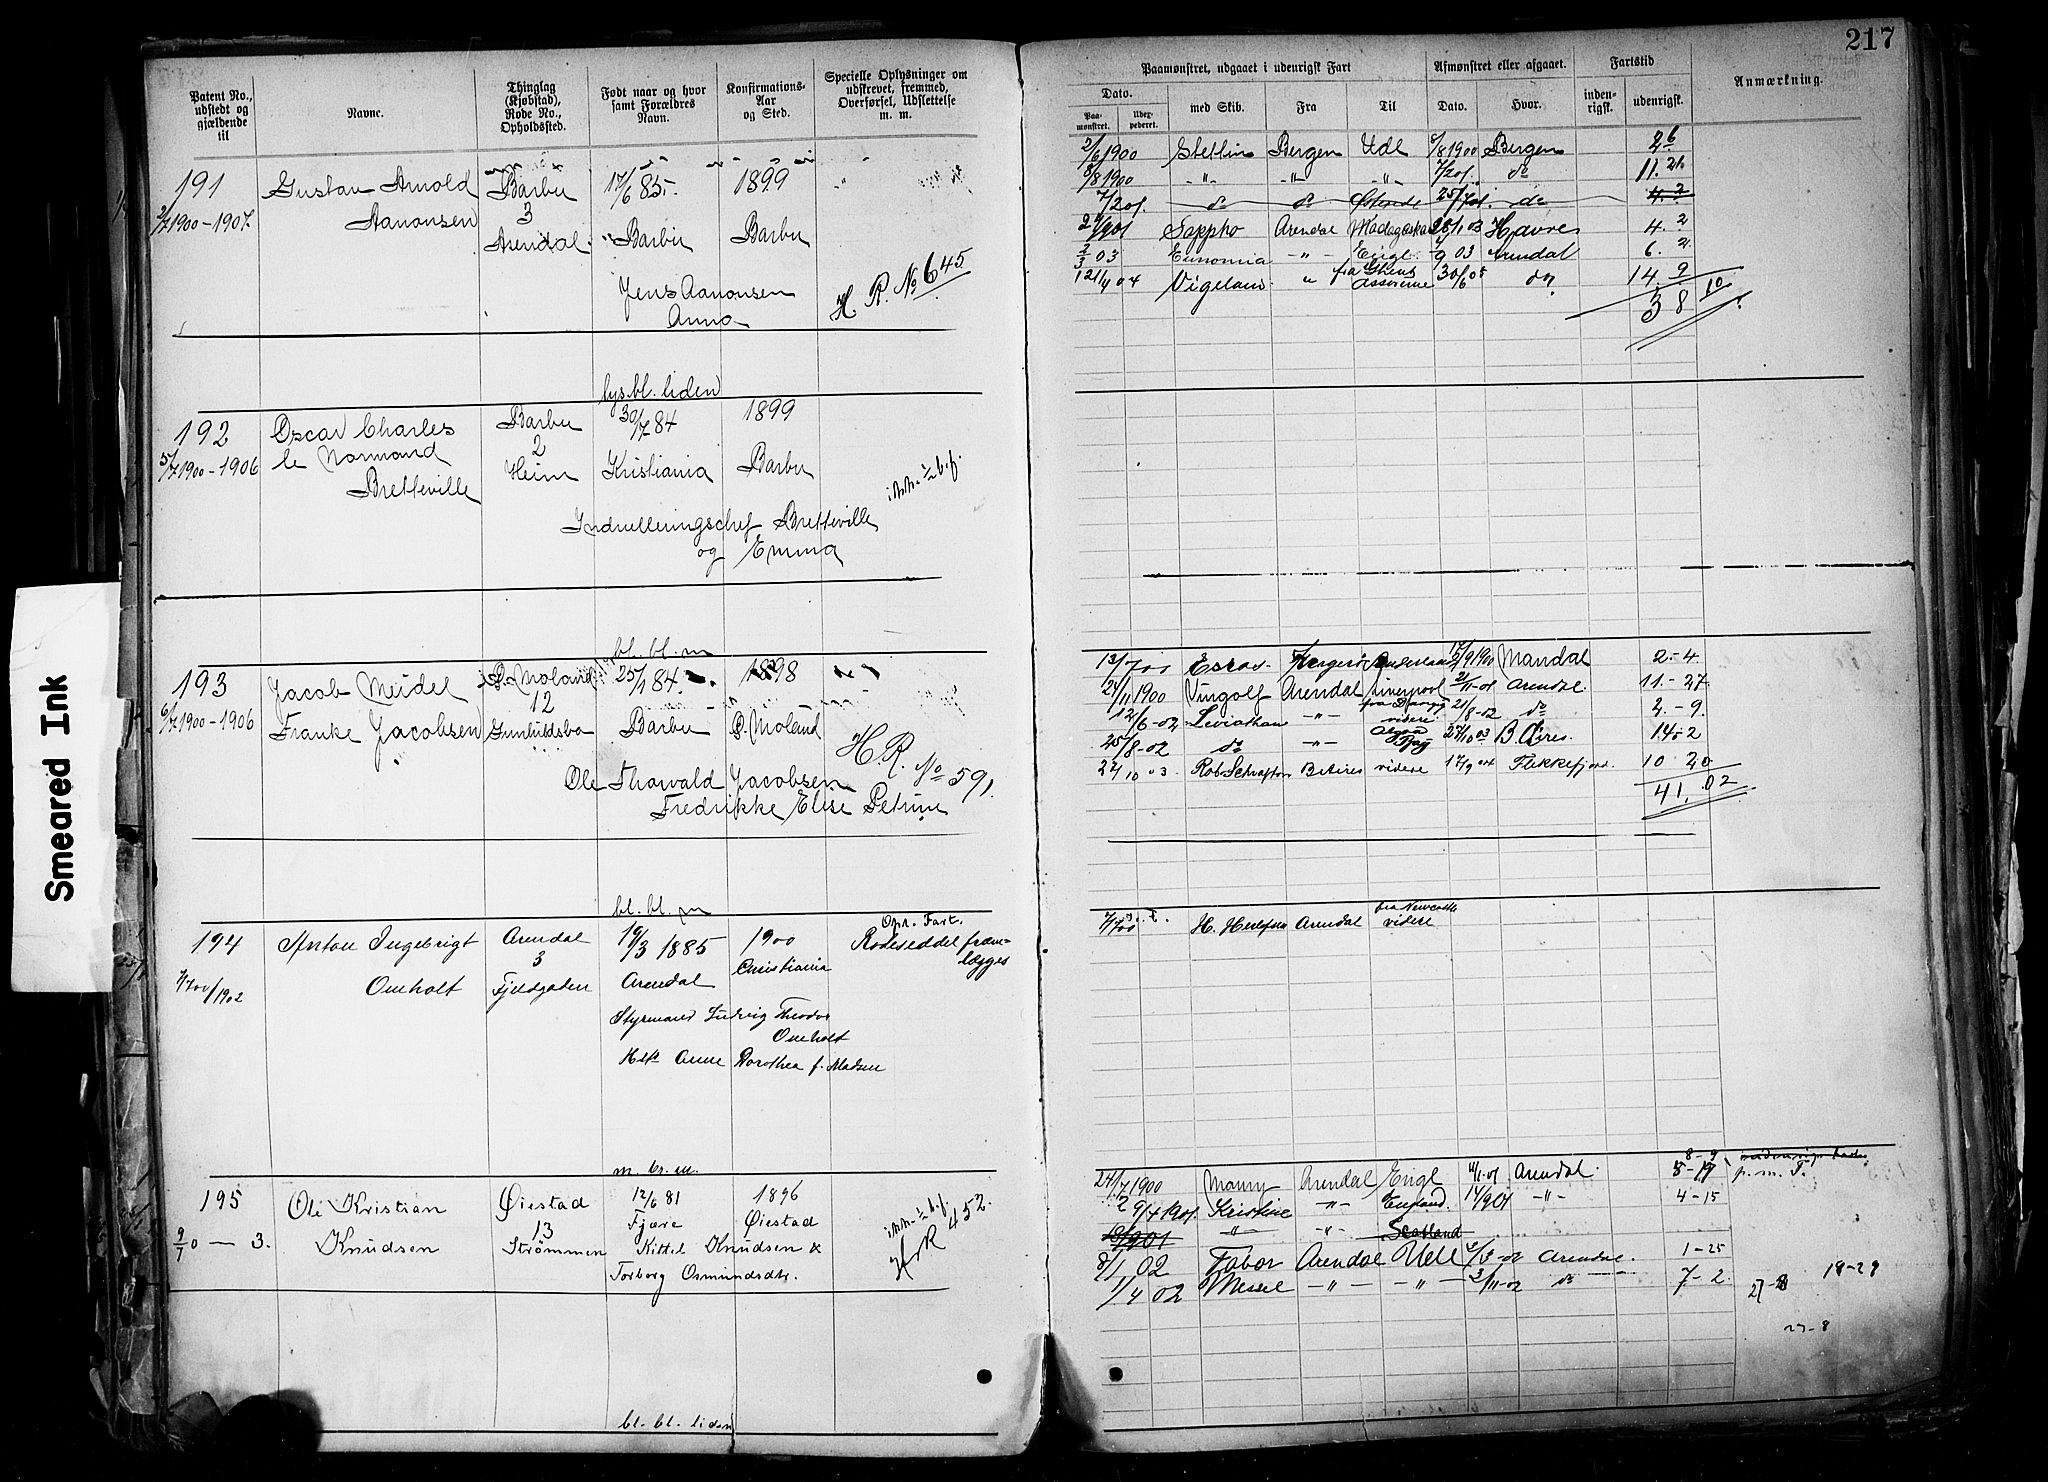 217
Patent No., udstedt og gjældende til
Navne.
Thinglag (Kjøbstad), Rode No., Opholdssted.
Født naar og hvor samt Forældres Navn.
Konfirmations-Aar og Sted.
Specielle Oplysninger om udskrevet, fremmed, Overførsel, Udslettelse m. m.
191 Gustav Arnold Barbu 17/6 85. 1899
2/7 1900-1907. Aanonsen 3 Barbu Barbu
Arendal
Jens Aanonsen H. R. No 645
Anna
lys. bl. liden
192 Oscar Charles Barbu 30/7 84 1899
le Normand 2
5/7 1900-1906 Bretteville Heim Kristiania Barbu
Indrulleringschef Bretteville
og Emma
bl. bl. m
193 Jacob Meidel Ø. Moland 25/1 84. 1898
12
6/7 1900-1906 Franke Jacobsen Gunhildsbo Barbu Ø. Moland
H. R. No 591.
Ole Thorvald Jacobsen
Fredrikke Elise Petrine
bl. bl. m
194 Anton Ingebrigt Arendal 19/3 1885 1900 Opr. Fart.
3 Christiania Rodeseddel frem-
lægges
7/7 00/1902 Omholt Fjeldgaden Arendal
Styrmand Ludvig Theodor
Omholt
Anne Dorothea f. Madsen
m. br. m.
195 Ole Kristian Øiestad 12/6 81 1896
13 Fjære Øiestad
9/7 0 — 3. Knudsen Strømmen Kittel Knudsen &
HR 452.
Torborg Osmundsdtr.
bl. bl. liden
Paamønstret, udgaaet i udenrigsk Fart
Afmønstret eller afgaaet.
Fartstid
Anmærkning.
Dato.
med Skib.
Fra
Til
Dato.
Hvor.
inden-rigsk.
udenrigsk.
Paa-mønstret.
Udex-pederet.
2/6 1900 Stettin Bergen Udl 8/8 1900 Bergen 2 6
8/8 1900 -"- -"- -"- 7/2 01. do 11. 26
7/2 01. do do 25/ 01. do 4. 2
Sappho Arendal Madagaskar 28/1 03 Havre 4. 2
2/3 03 Eunomia -"- Engl. 4/9 03 Arendal 6. 2
12/4 04 Vigeland " 30/6 05 do 14. 9
38 10.
13/7 00 Mandal 2-4
24/11 1900 Vingolf Arendal Liverpool 21/11-01 Arendal. 11-27
12/6-02 Leviathan -"- videre 21/8-02 do 2.-9.
25/8-02 do -"- 27/10 03 B. Aires. 14-2
27/10 03. B Aires videre 17/9 04 Flekkefjord. 10 20
41. 02
7/7 00 Arendal fra Newcastle videre
24/7 1900 Arendal Engl 11/1-01 Arendal. 8-9
p. m. F.
29/4 1901. Kristine -"- England. 14/9 01 -"- 4-15
-"- -"- Scotland
8/1 02 Tabor Arendal Udl 3/3-02 Arendal. 1-25
1/4 02 Messel -"- -"- 3/11-02 do 7-2. 19-29
27-8
Smeared Ink